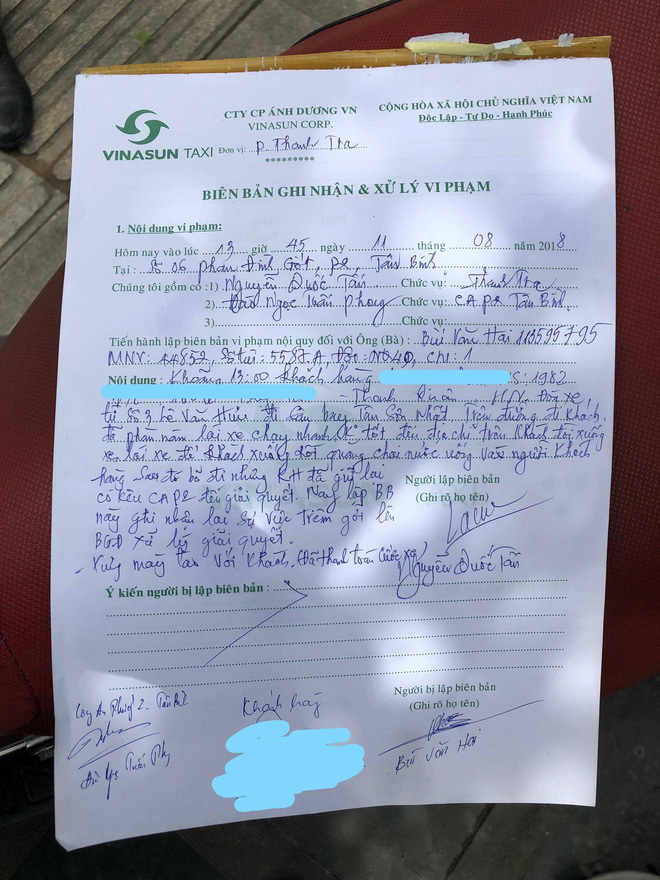 CTY CP ÁNH DƯƠNG VN
VINASUN CORP.
CỘNG HÒA XÃ HỘI CHỦ NGHĨA VIỆT NAM
Độc Lập - Tự Do - Hạnh Phúc
VINASUN TAXI Đơn vị: P. Thanh Tra
BIÊN BẢN GHI NHẬN & XỬ LÝ VI PHẠM
1. Nội dung vi phạm:
Hôm nay vào lúc 13 giờ 45 ngày 11 tháng 08 năm 2018
Tại: Số 06 Phan Đình Giót, P2, Tân Bình
Chúng tôi gồm có :1) Nguyễn Quốc Tấn Chức vụ: Thanh Tra
2) Ngọc Tuấn Phong Chức vụ: CAP2 Tân Bình
3) Chức vụ:
Tiến hành lập biên bản vi phạm nội quy đối với Ông (Bà) : Bùi Văn Hai 113595795
MNV: 44852, Số tài: 5587A,
Nội dung : Khoảng 13:00 Khách hàng 1982
Đón xe
từ Số 3 Lê Văn Hưu đi Sân bay Tân Sơn Nhất. Trên đường đi Khách
đã phàn nàn lái xe chạy nhanh K tốt, đến địa chỉ trên Khách đòi xuống
xe lái xe để Khách xuống rồi quăng chai nước uống vào người Khách
hàng Sau đó bỏ đi nhưng KH đã giữ lại
có kêu CAP2 đến giải quyết. Nay lập BB
này ghi nhận lại Sự việc trên gởi lên
BGĐ xử lý giải quyết.
với Khách. Đã thanh toán cước xe
Người lập biên bản
(Ghi rõ họ tên)
Nguyễn Quốc Tấn
Ý kiến người bị lập biên bản :
Công An Phường 2 - Tân Bình
Khách hàng
Người bị lập biên bản
(Ghi rõ họ tên)
Bùi Văn Hai